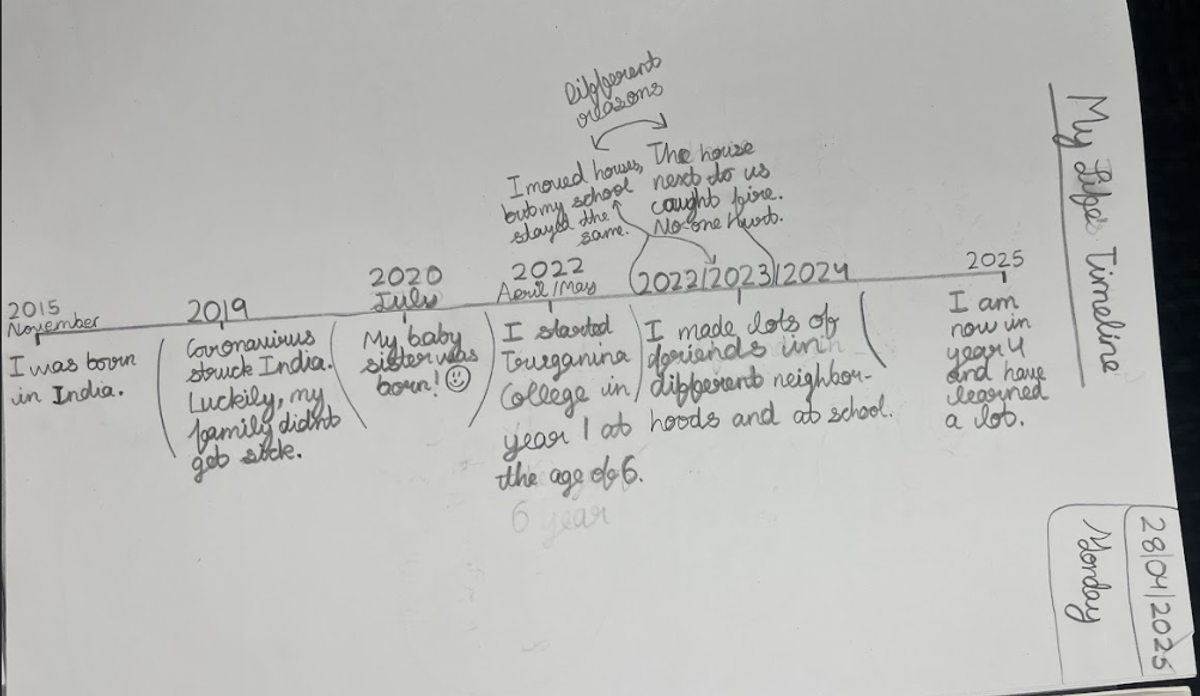 My Life's Timeline
28/04/2025
Monday
Different
reasons
I moved houses,
but my school
stayed the
same.
The house
next to us
caught fire.
No-one Hurt.
2015
November
I was born
in India.
2019
Coronavirus
struck India.
Luckily, my
family didn't
get sick.
2020
July
My baby
sister was
born! ☺
2022
April/May
I started
Truganina
College in
year 1 at
the age of 6.
6 year
2022/2023/2024
I made lots of
friends in
different neighbor-
hoods and at school.
2025
I am
now in
year 4
and have
learned
a lot.